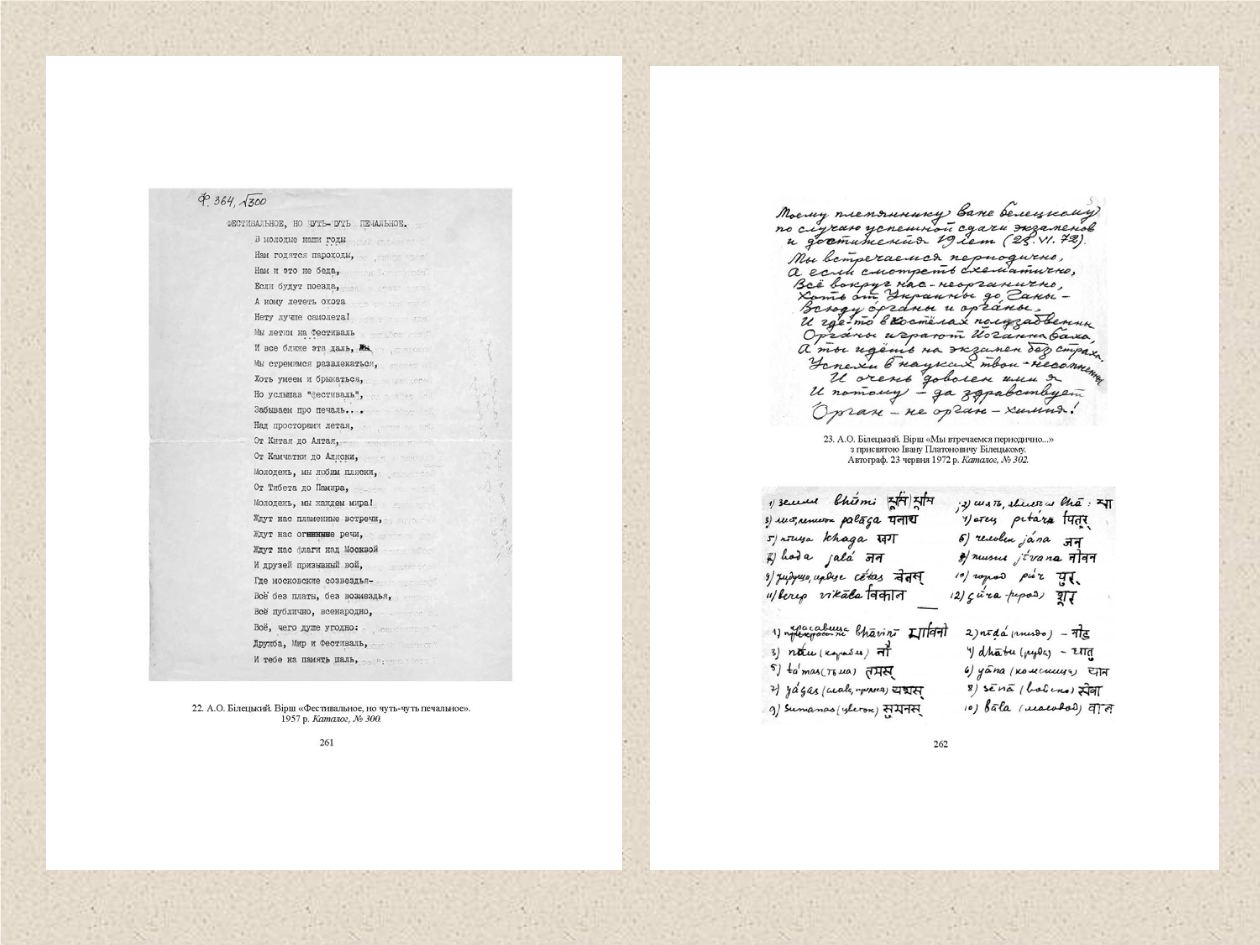 Ф. 364, №300
ФЕСТИВАЛЬНОЕ, НО ЧУТЬ-ЧУТЬ ПЕЧАЛЬНОЕ.
В молодые наши годы
Нам годятся пароходы,
Нам и это не беда,
Если будут поезда,
А кому лететь охота
Нету лучше самолета!
Мы летим на Фестиваль
И все ближе эта даль,
Мы стремимся развлекаться,
Хоть умеем и брыкаться,
Но услышав "фестиваль",
Забываем про печаль...
Над просторами летая,
От Китая до Алтая,
От Камчатки до Аляски,
Молодежь, мы любим пляски,
От Тибета до Памира,
Молодежь, мы жаждем мира!
Ждут нас пламенные встречи,
Ждут нас огненные речи,
Ждут нас флаги над Москвой
И друзей призывный вой,
Где московские созвездья-
Всё без платы, без возмездья,
Всё публично, всенародно,
Всё, чего душе угодно:
Дружба, Мир и Фестиваль,
И тебе на память шаль,
22. А.О. Білецький. Вірш «Фестивальное, но чуть-чуть печальное».
1957 р. Каталог, № 300.
261
Моему племяннику Ване Белецкому
по случаю успешной сдачи экзаменов
и достижения 19 лет (23.VI.72).
Мы встречаемся периодично,
А если смотреть схематично,
Всё вокруг нас - неорганично,
Хоть от Украины до Ганы -
Всюду о́рганы и орга́ны.
И где-то в костёлах полузабвенных
Орга́ны играют Иоганна Баха,
А ты идёшь на экзамен без страха.
Успехи в науках твои - несомненны
И очень доволен ими я
И потому - да здравствует
Орган - не орган - химия!
23. А.О. Білецький. Вірш «Мы втречаемся периодично...»
з присвятою Івану Платоновичу Білецькому.
Автограф. 23 червня 1972 р. Каталог, № 302.
1) земля bhūmi
3) palāça
4) отец pitára पितृर्
5) птица khaga खग
6) человек jána जन
7) вода jalá जन
8) жизнь jīvana
9) cétas चेतस्
10) город púr पुर्
11) вечер vikāla विकान
12) çūra शूर
1) красавица bhāvinī
2) nīdá (гнездо) -
3) nāu (корабль) नौ
4) dhātu (руда) -
5) támas (тьма) तमस्
6) yāna यान
7) yáças
8) sénā सेना
9) sumanas (цветок) सुमनस्
10) bāla
262